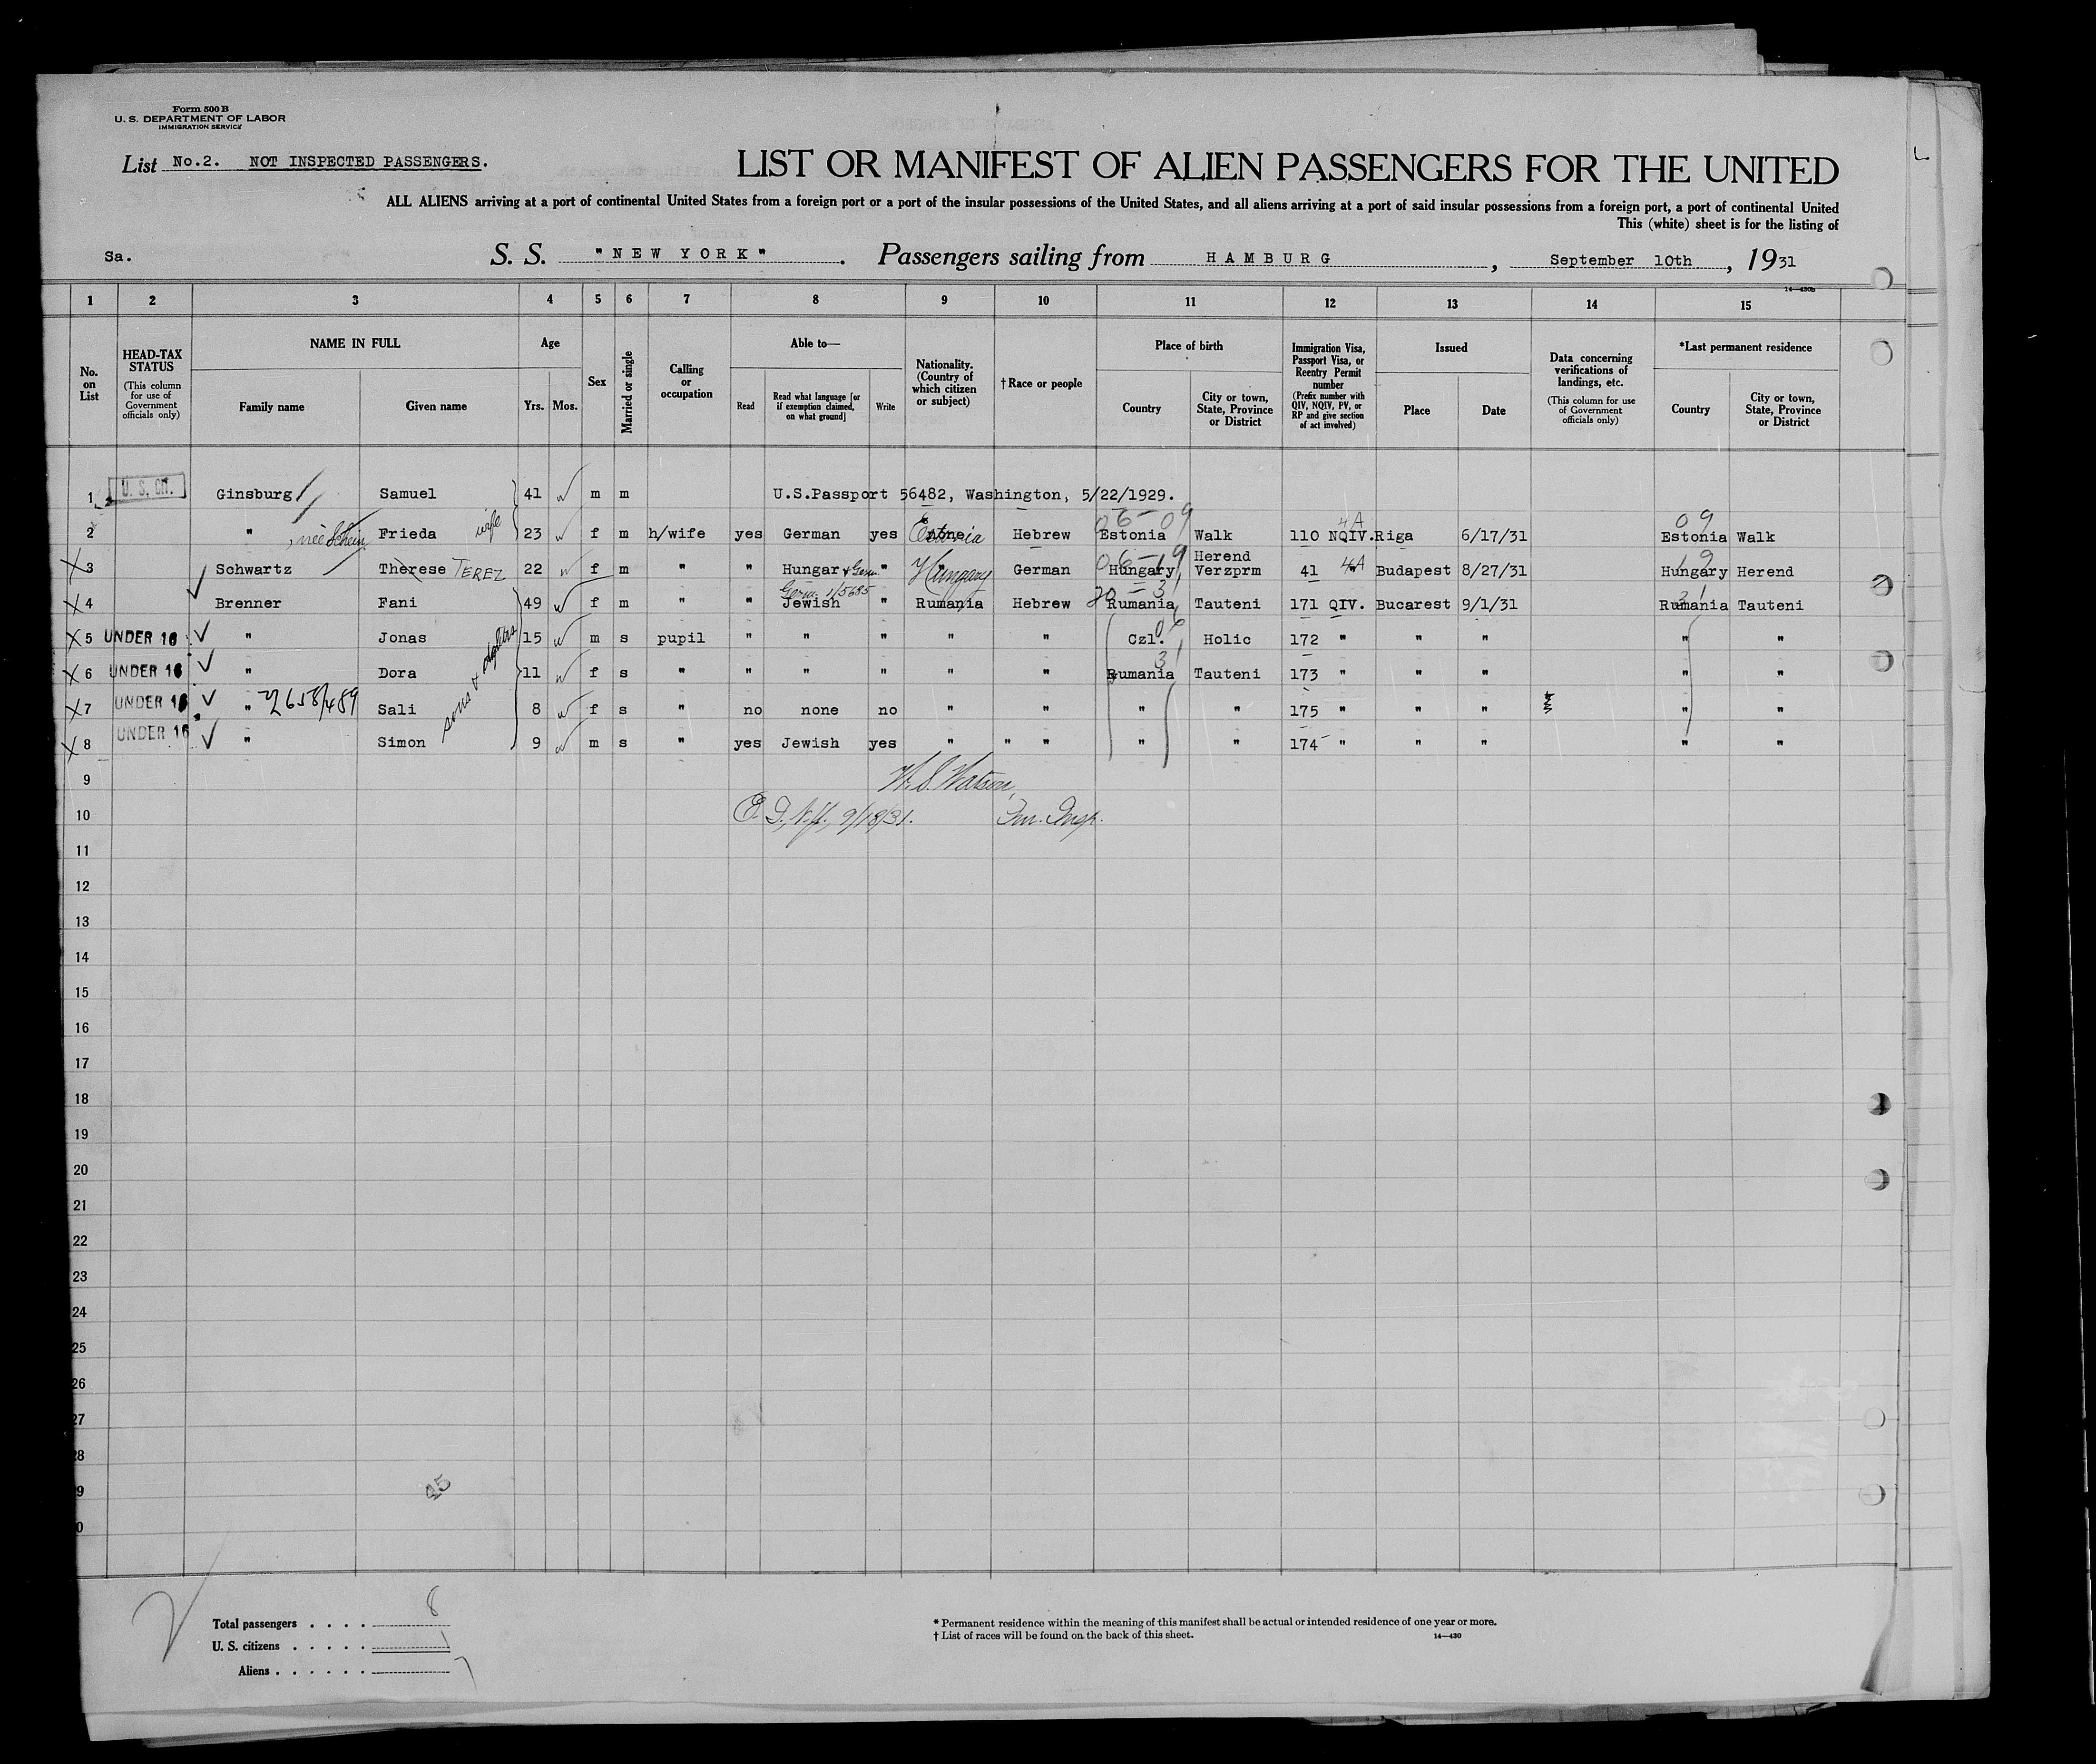 Form 500 B
U. S. DEPARTMENT OF LABOR
IMMIGRATION SERVICE
List No.2. NOT INSPECTED PASSENGERS.
LIST OR MANIFEST OF ALIEN PASSENGERS FOR THE UNITED
ALL ALIENS arriving at a port of continental United States from a foreign port or a port of the insular possessions of the United States, and all aliens arriving at a port of said insular possessions from a foreign port, a port of continental United
This (white) sheet is for the listing of
Sa. S. S. "NEW YORK". Passengers sailing from HAMBURG, September 10th, 1931
14—430b
1 2 3 4 5 6 7 8 9 10 11 12 13 14 15
No. on List
HEAD-TAX STATUS (This column for use of Government officials only)
NAME IN FULL
Family name Given name
Age
Yrs. Mos.
Sex
Married or single
Calling or occupation
Able to—
Read Read what language [or if exemption claimed, on what ground] Write
Nationality. (Country of which citizen or subject)
† Race or people
Place of birth
Country City or town, State, Province or District
Immigration Visa, Passport Visa, or Reentry Permit number (Prefix number with QIV, NQIV, PV, or RP and give section of act involved)
Issued
Place Date
Data concerning verifications of landings, etc. (This column for use of Government officials only)
*Last permanent residence
Country City or town, State, Province or District
1 U. S. CIT. Ginsburg Samuel 41 m m U.S.Passport 56482, Washington, 5/22/1929.
06-09 4A 09
2 " , née Schein Frieda wife 23 f m h/wife yes German yes none Estonia Hebrew Estonia Walk 110 NQIV. Riga 6/17/31 Estonia Walk
06-19 19
3 Schwartz Thèrese TEREZ 22 f m " " Hungar & Germ. " " Hungary German Hungary Herend Verzprm 41 " 4A Budapest 8/27/31 Hungary Herend
Germ. 1/5685 20-31 31
4 Brenner Fani 49 f m " " Jewish " Rumania Hebrew Rumania Tauteni 171 QIV. Bucarest 9/1/31 Rumania Tauteni
5 UNDER 16 " Jonas 15 m s pupil " " " " " Czl. 06 Holic 172 " " " " "
sons & daughters
6 UNDER 16 " Dora 11 f s " " " " " " 31 Rumania Tauteni 173 " " " " "
7 UNDER 16 " 2658/489 Sali 8 f s " no none no " " " " 175 " " " " "
8 UNDER 16 " Simon 9 m s " yes Jewish yes " " " " " 174 " " " " "
9 W. S. Watson,
10 9/18/31. Im. Insp.
11
12
13
14
15
16
17
18
19
20
21
22
23
24
25
26
27
28
9
0
45
Total passengers . . . . 8
U. S. citizens . . . . . 1
Aliens . . . . . . 7
* Permanent residence within the meaning of this manifest shall be actual or intended residence of one year or more.
† List of races will be found on the back of this sheet. 14—430